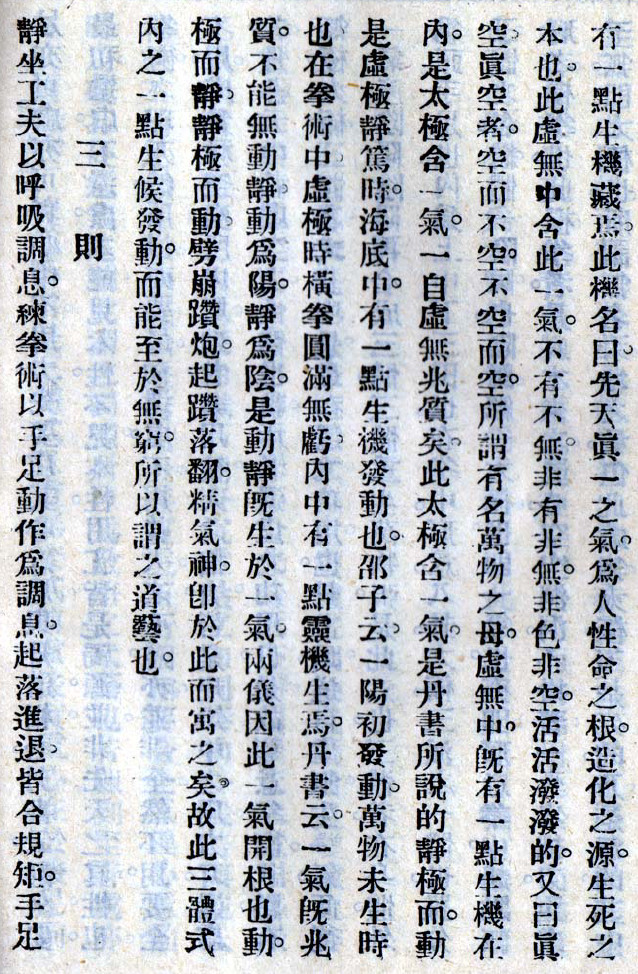 有一點生機藏焉。此機名曰先天眞一之氣。爲人性命之根。造化之源。生死之
本也。此虛無中含此一氣。不有不無。非有非無。非色非空。活活潑潑的。又曰眞
空。眞空者。空而不空。不空而空。所謂有名萬物之母。虛無中。旣有一點生機在
內。是太極含一氣。一自虛無兆質矣。此太極含一氣。是丹書所說的靜極而動。
是虛極靜篤時。海底中。有一點生機發動也。邵子云。一陽初發動。萬物未生時
也。在拳術中。虛極時。橫拳圓滿無虧。內中有一點靈機生焉。丹書云。一氣旣兆
質。不能無動靜。動爲陽。靜爲陰。是動靜旣生於一氣。兩儀因此一氣開根也。動
極而靜。靜極而動。劈崩躦炮。起躦落翻。精氣神。卽於此而寓之矣。故此三體式
內之一點生候發動。而能至於無窮。所以謂之道藝也。
三則
靜坐工夫以呼吸調息。練拳術以手足動作爲調息。起落進退。皆合規矩。手足